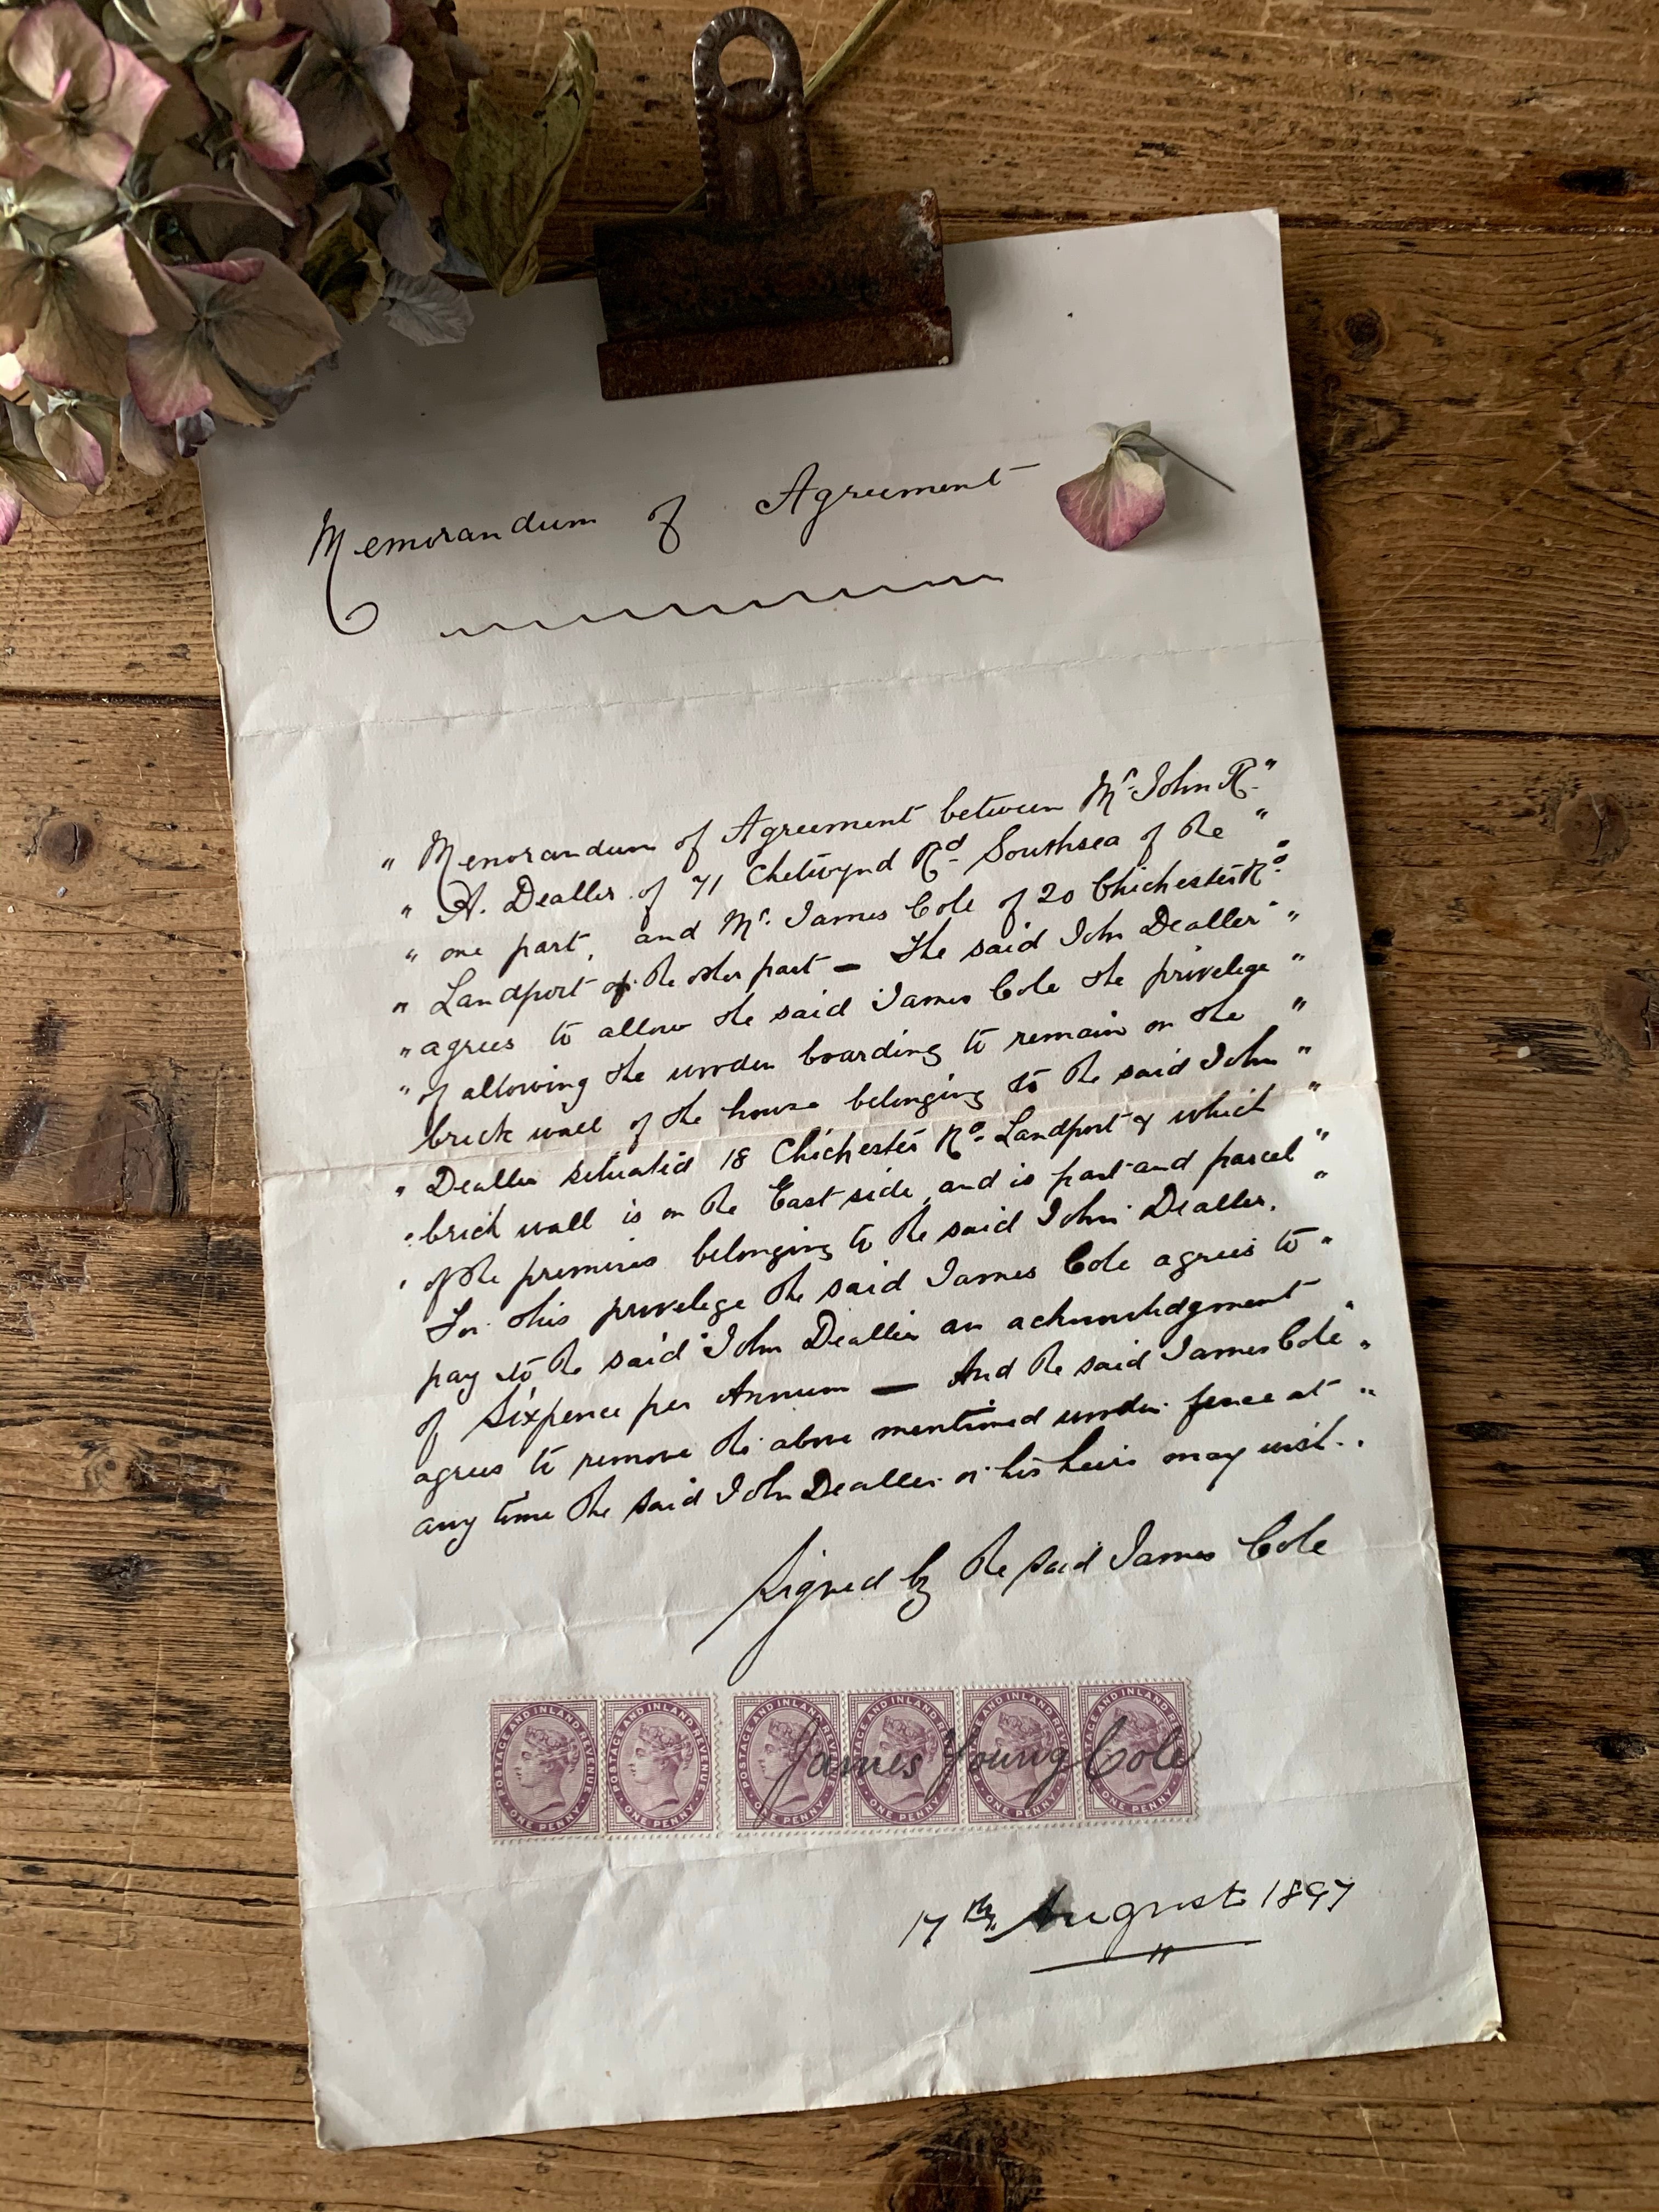 Memorandum of Agreement
" Memorandum of Agreement between Mr. John R. "
" A. Dealler of 71 Chetwynd Rd. Southsea of the "
" one part, and Mr. James Cole of 20 Chichester Rd. "
" Landport of the other part — The said John Dealler "
" agrees to allow the said James Cole the privelege "
" of allowing the wooden boarding to remain on the "
brick wall of the house belonging to the said John "
" Dealler situated 18 Chichester Rd. Landport & which "
" brick wall is on the East side, and is part and parcel "
" of the premises belonging to the said John Dealler. "
For this privelege the said James Cole agrees to "
pay to the said John Dealler an acknowledgment "
of Sixpence per Annum — And the said James Cole "
agrees to remove the above mentioned wooden fence at "
any time the said John Dealler or his heirs may wish.
Signed by the said James Cole
POSTAGE AND INLAND REVENUE ONE PENNY
POSTAGE AND INLAND REVENUE ONE PENNY
POSTAGE AND INLAND REVENUE ONE PENNY
POSTAGE AND INLAND REVENUE ONE PENNY
POSTAGE AND INLAND REVENUE ONE PENNY
POSTAGE AND INLAND REVENUE ONE PENNY
James Young Cole
17th August 1897
"